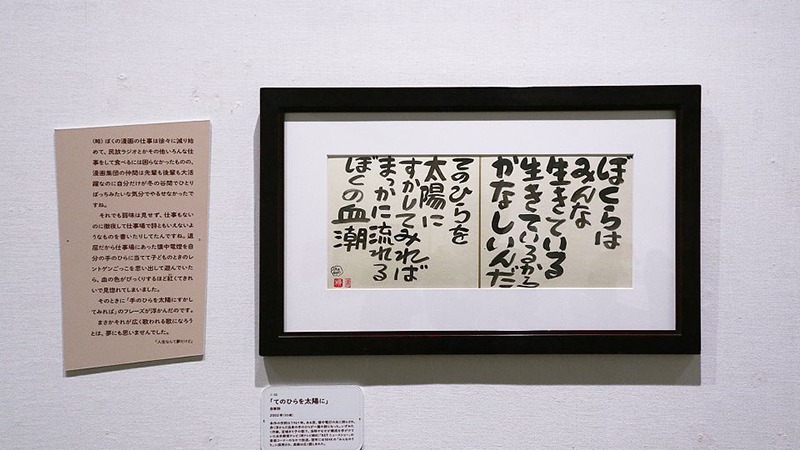 (略)ぼくの漫画の仕事は徐々に減り始
めて、民放ラジオとかその他いろんな仕
事をして食べるには困らなかったものの、
漫画集団の仲間は先輩も後輩も大活
躍なのに自分だけが冬の谷間でひとり
ぼっちみたいな気分でやるせなかったで
すね。
それでも弱味は見せず、仕事もない
のに徹夜して仕事場で詩ともいえないよ
うなものを書いたりしてたんですね。退
屈だから仕事場にあった懐中電燈を自
分の手のひらに当てて子どものときのレ
ントゲンごっこを思い出して遊んでいた
ら、血の色がびっくりするほど紅くてきれ
いで見惚れてしまいました。
そのときに「手のひらを太陽にすかし
てみれば」のフレーズが浮かんだのです。
まさかそれが広く歌われる歌になろう
とは、夢にも思いませんでした。
『人生なんて夢だけど』
ぼくらは
みんな
生きている
生きているから
かなしいんだ
てのひらを
太陽に
すかしてみれば
まっかに流れる
ぼくの血潮
「てのひらを太陽に」